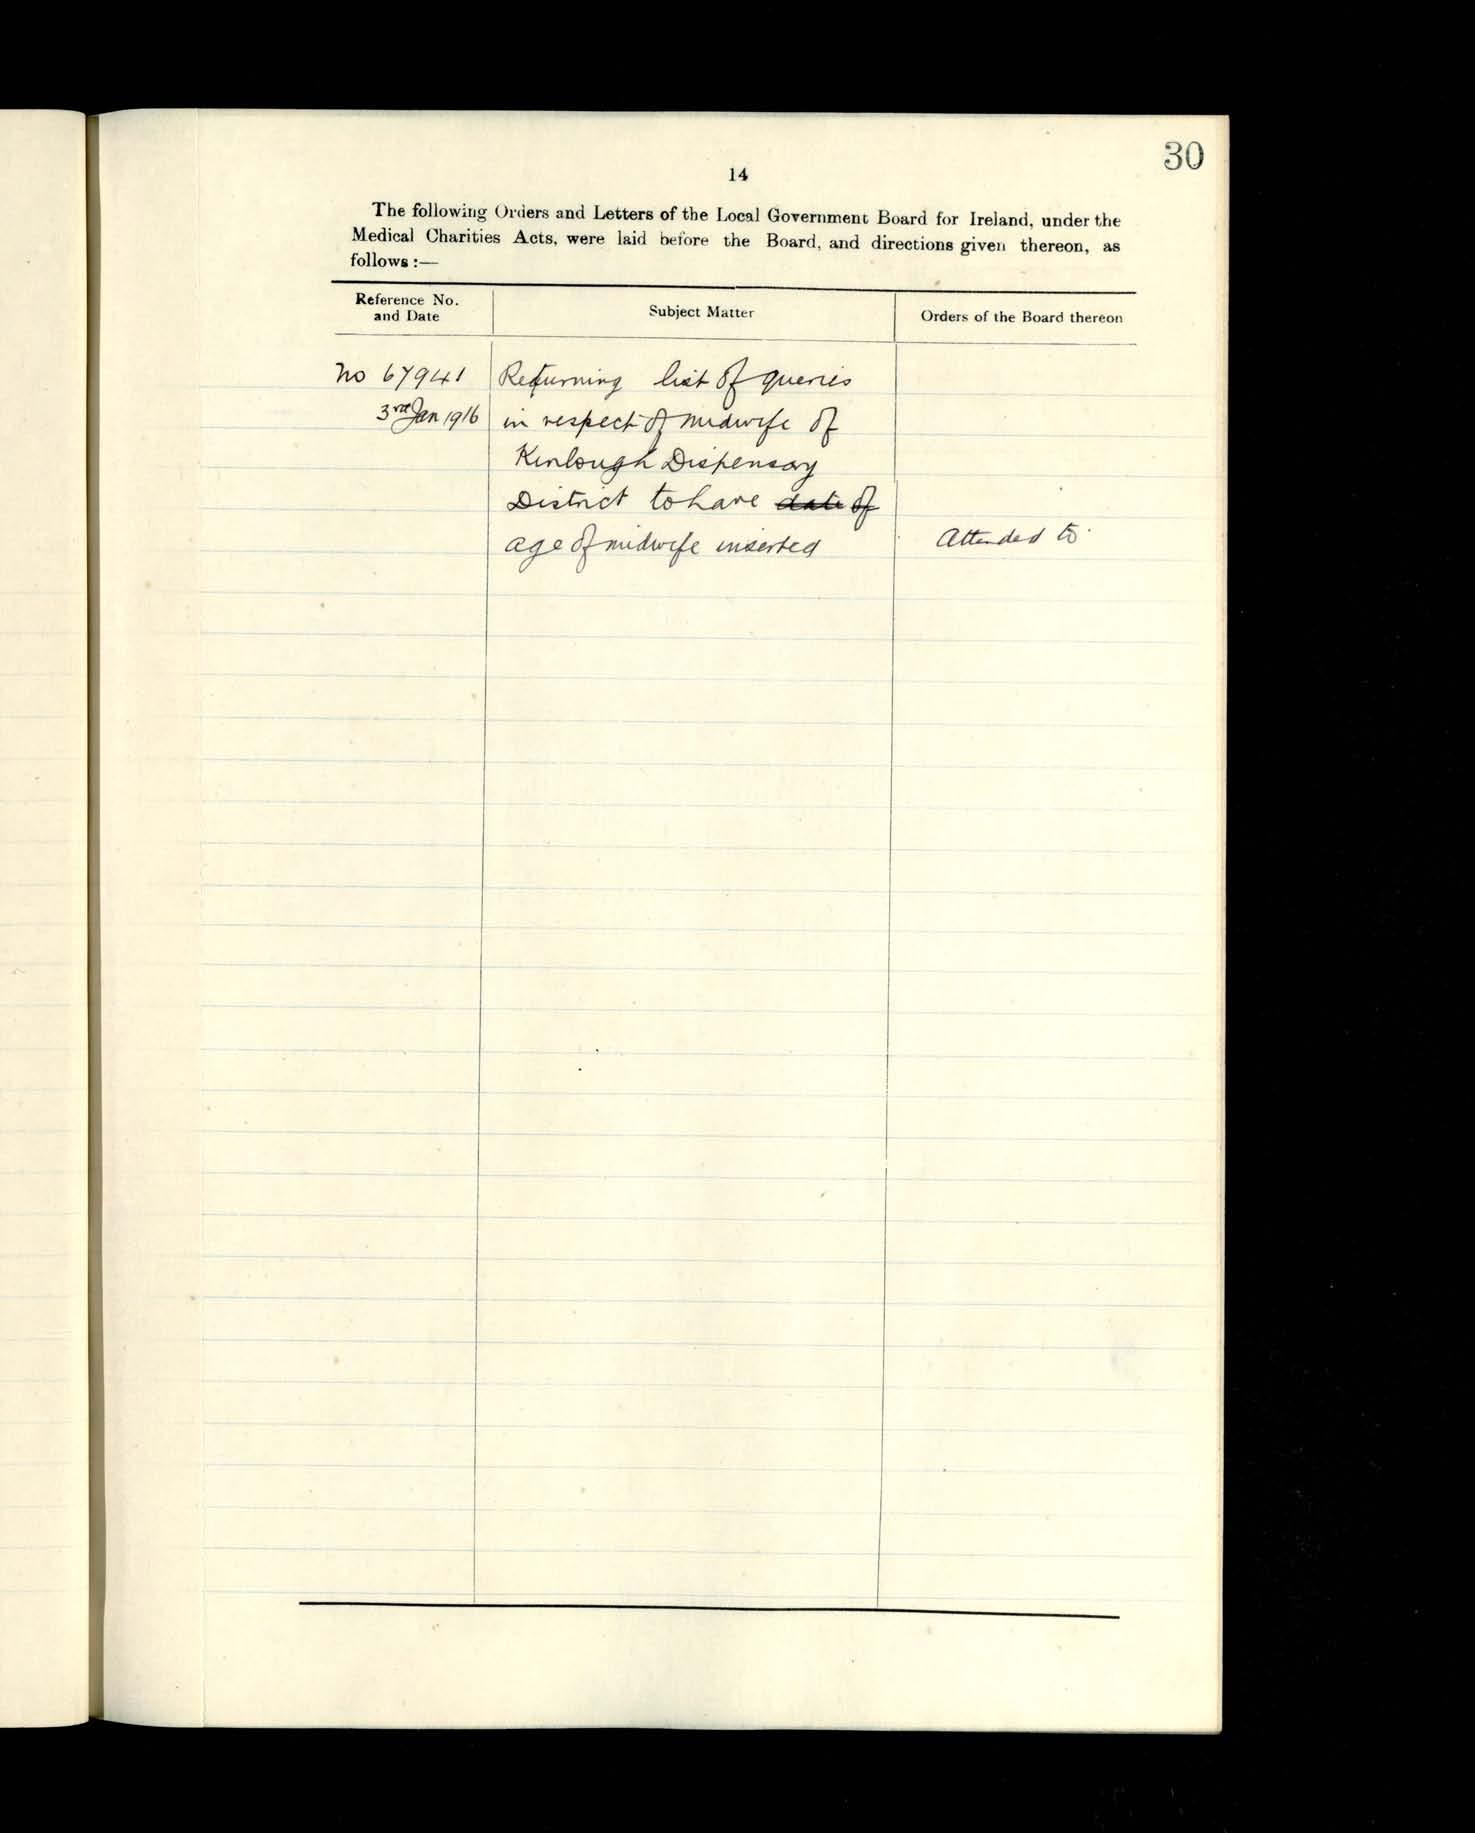 30
14
The following Orders and Letters of the Local Government Board for Ireland, under the
Medical Charities Acts, were laid before the Board, and directions given thereon, as
follows :—
Reference No.
and Date
Subject Matter
Orders of the Board thereon
No 67941
3rd Jan 1916
Returning list of queries
in respect of midwife of
Kinlough Dispensary
District to have date of
age of midwife inserted
Attended to